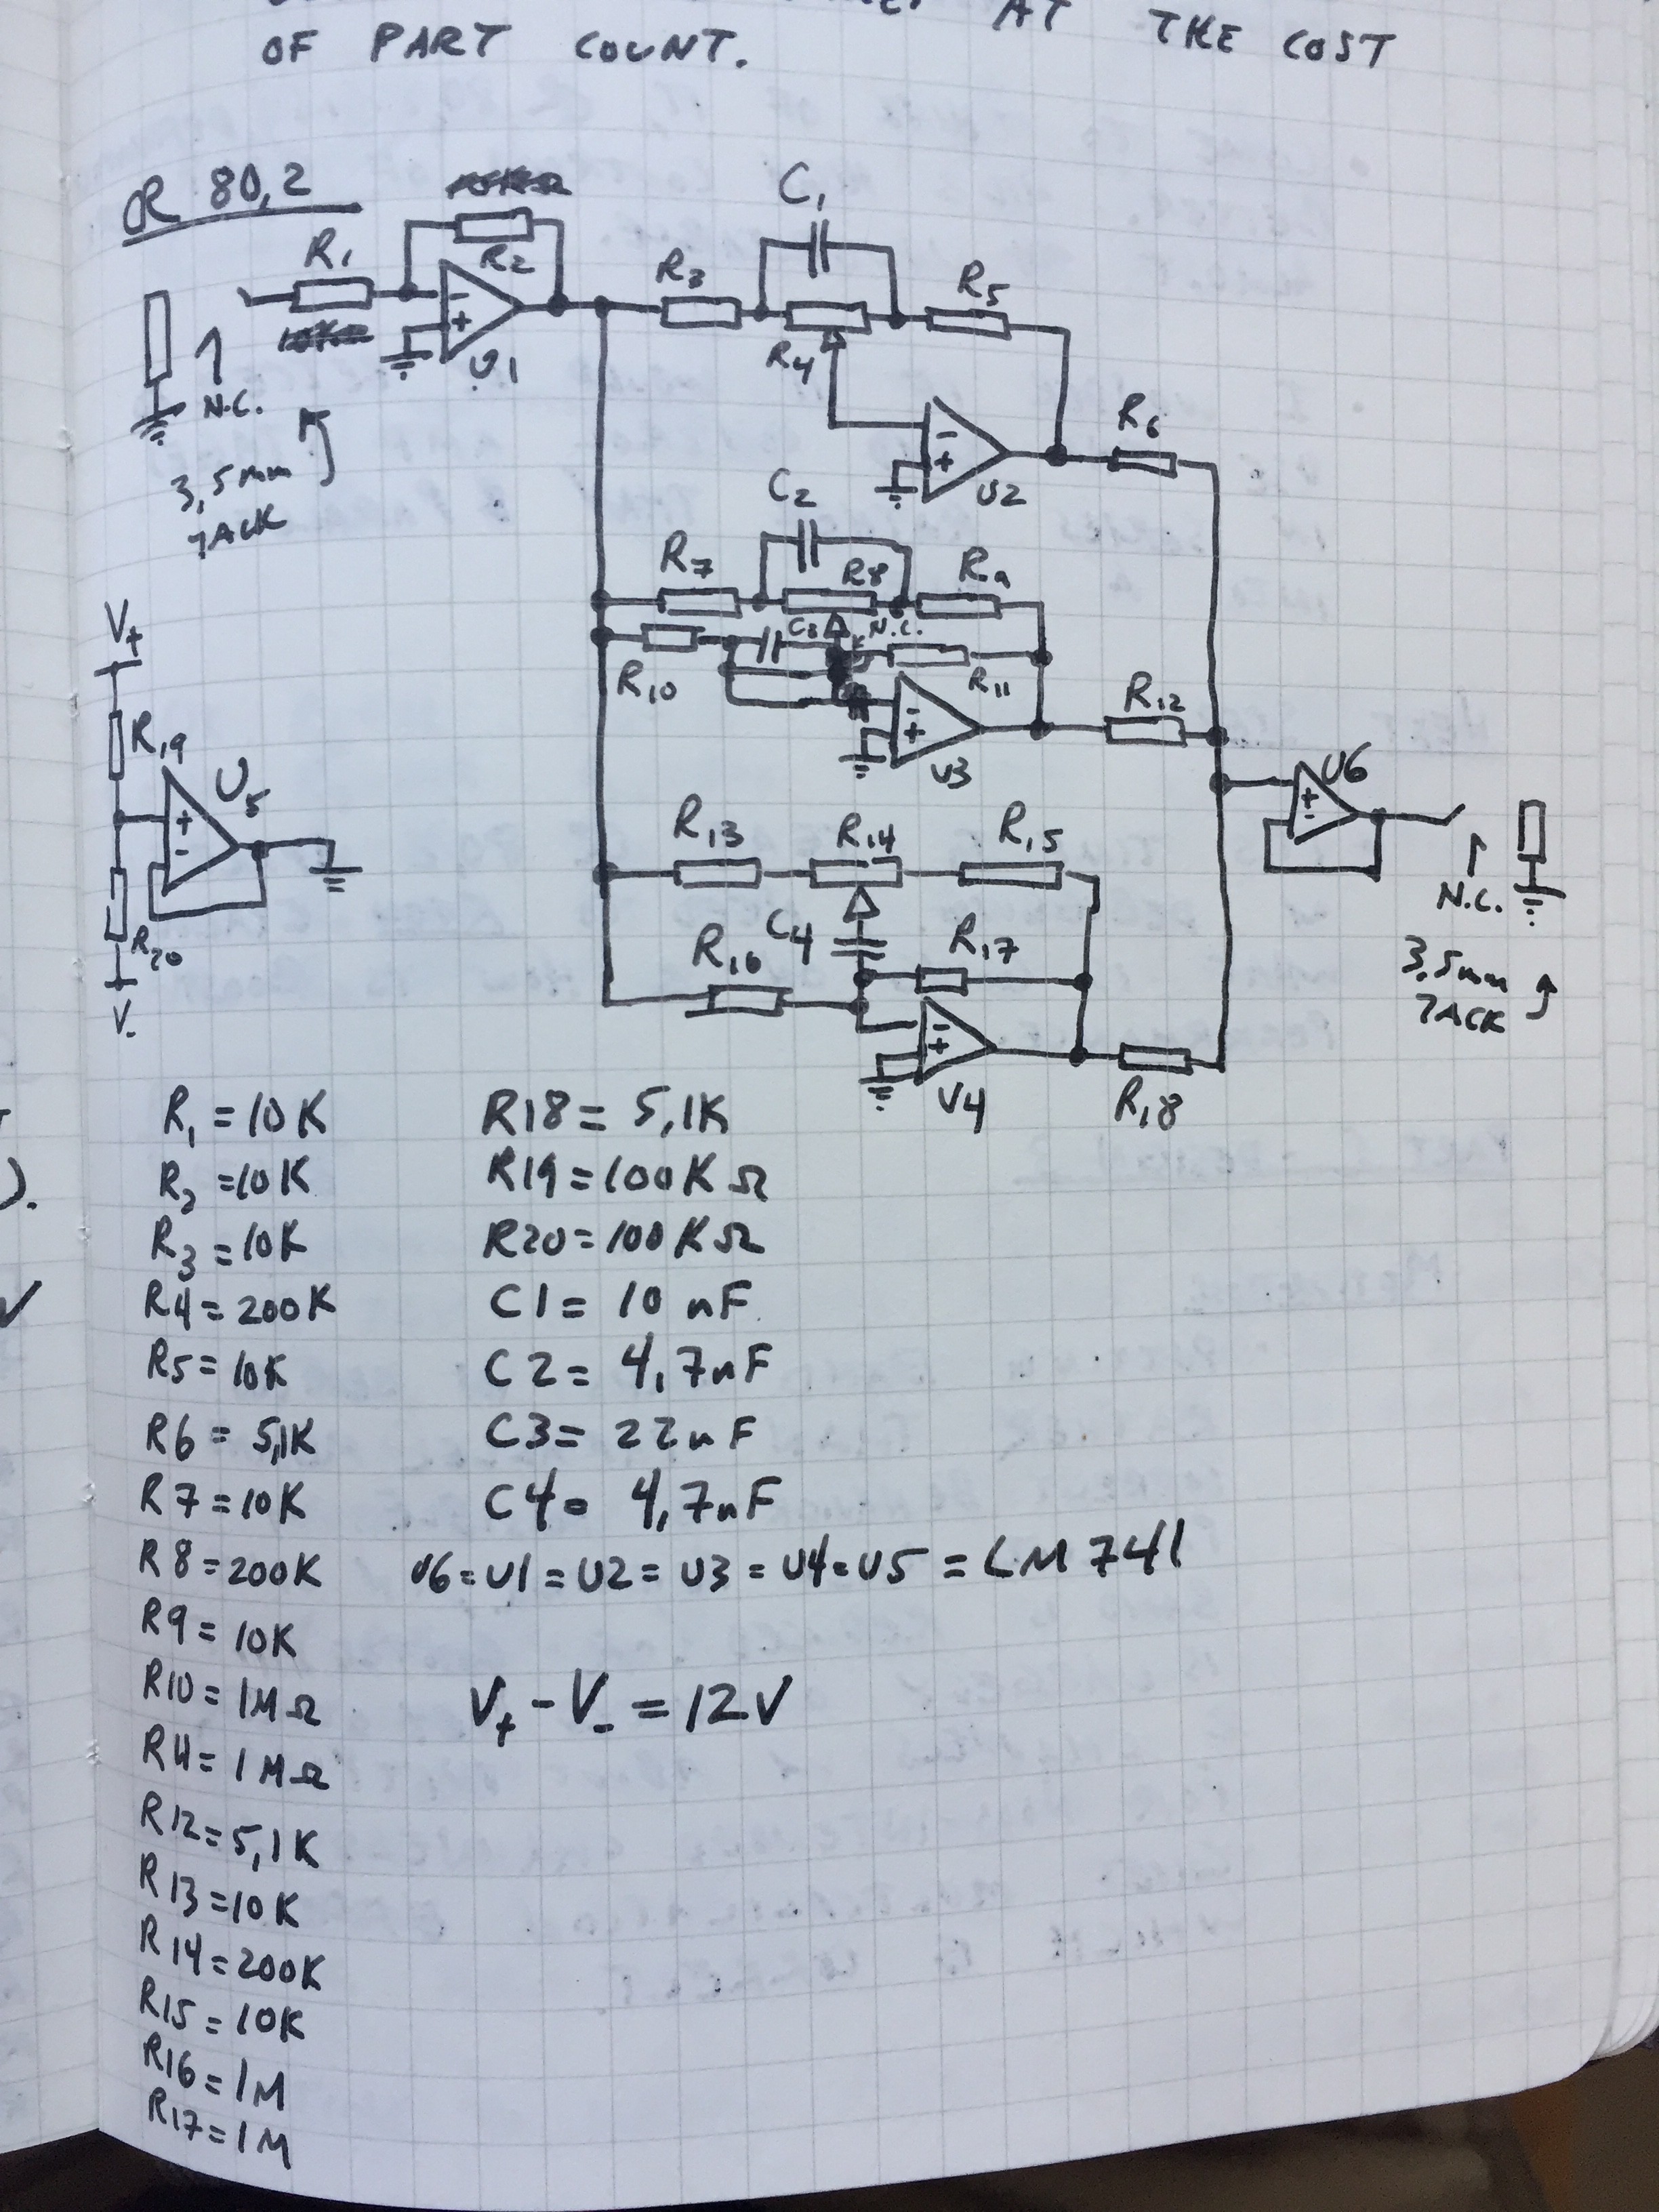 AT THE COST
OF PART COUNT.
R 80,2
R1
R2
U1
N.C.
3,5mm
JACK
R3
C1
R4
R5
U2
R6
C2
R7
R8
R9
C3
N.C.
R10
R11
U3
R12
V+
R19
U5
R20
V-
R13
R14
R15
C4
R16
R17
U4
R18
U6
N.C.
3,5mm
JACK
R1 = 10K
R2 = 10K
R3 = 10K
R4 = 200K
R5 = 10K
R6 = 5,1K
R7 = 10K
R8 = 200K
R9 = 10K
R10 = 1MΩ
R11 = 1MΩ
R12 = 5,1K
R13 = 10K
R14 = 200K
R15 = 10K
R16 = 1M
R17 = 1M
R18 = 5,1K
R19 = 100KΩ
R20 = 100KΩ
C1 = 10nF
C2 = 4,7nF
C3 = 22nF
C4 = 4,7nF
U6 = U1 = U2 = U3 = U4 = U5 = LM741
V+ - V- = 12V